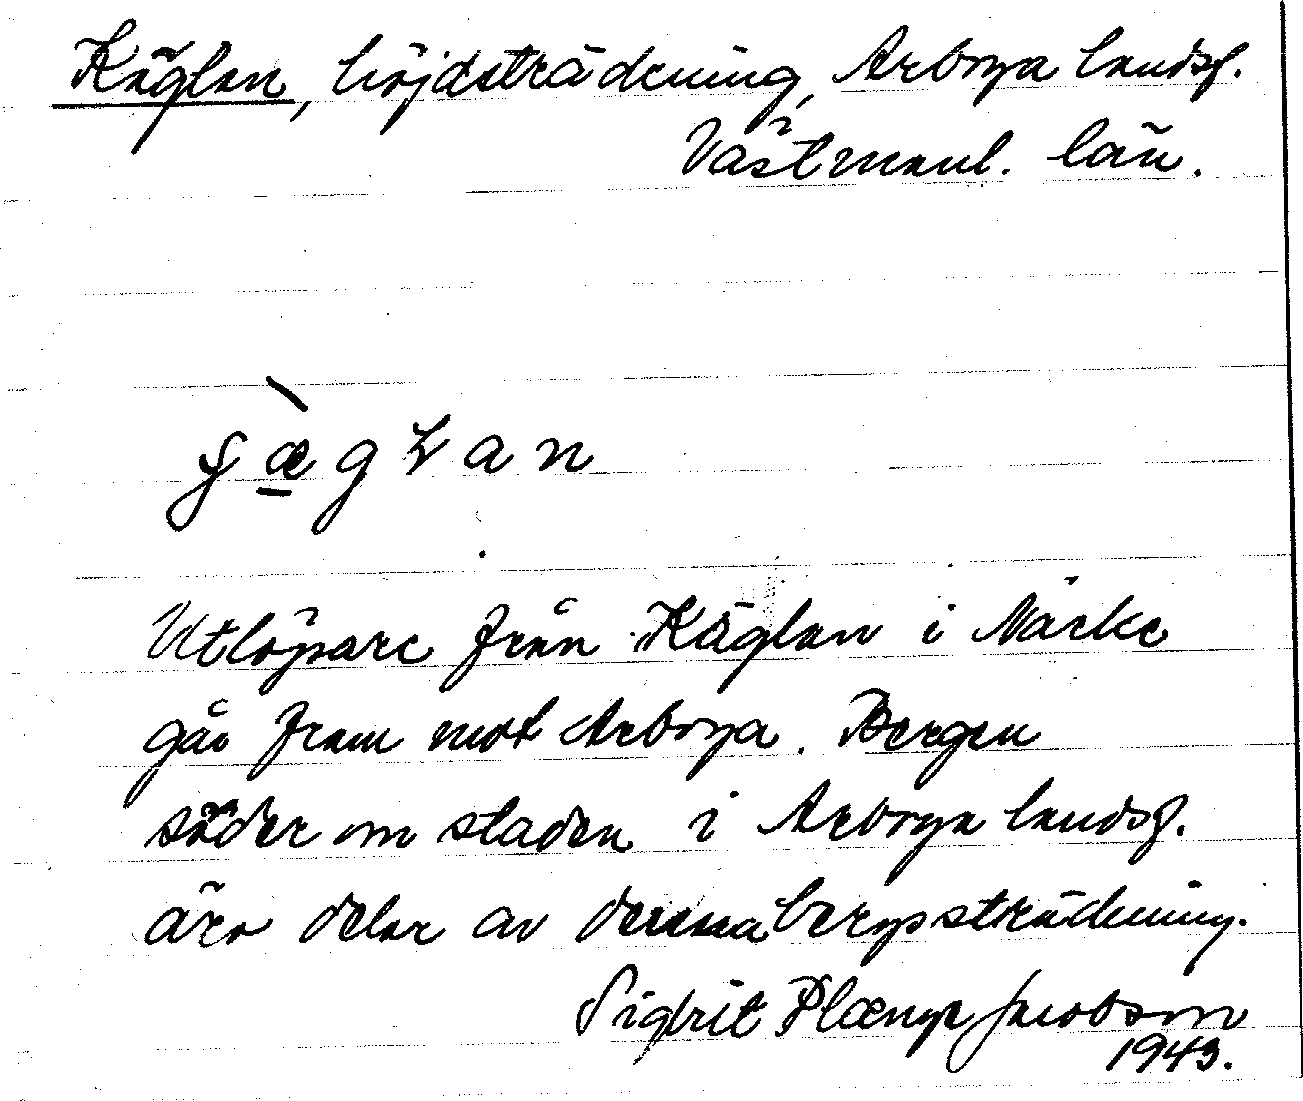 Käglan, höjdsträckning, Arboga landsf.
Västmanl. län.
Utlöpare från Käglan i Närke
går fram mot Arboga. Bergen
söder om staden i Arboga landsf.
äro delar av denna bergssträckning.
Sigbrit Plænge Jacobson
1943.